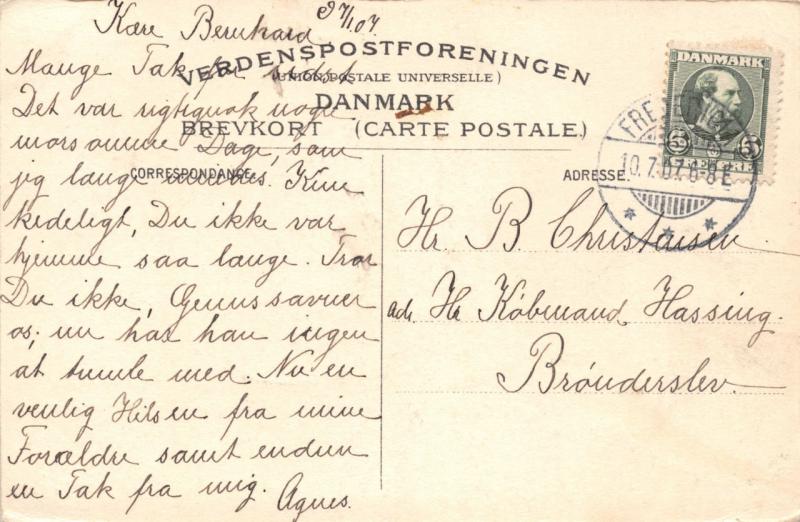 Kære Bernhard 9/7.07
VERDENSPOSTFORENINGEN
(UNION POSTALE UNIVERSELLE)
DANMARK
BREVKORT (CARTE POSTALE.)
CORRESPONDANCE.
ADRESSE.
Mange Tak for sidst
Det var rigtignok nogle
morsomme Dage, som
jeg længe mindes. Kun
kedeligt, Du ikke var
hjemme saa længe. Tror
Du ikke, savner
os; nu har han ingen
at tumle med. Nu en
venlig Hilsen fra mine
Forældre samt endnu
en Tak fra mig. Agnes.
DANMARK
5 5
FREDERICIA
10.7.07. 6-8 E
Hr. B. Christensen
adr. Hr. Købmand Hassing.
Brønderslev.